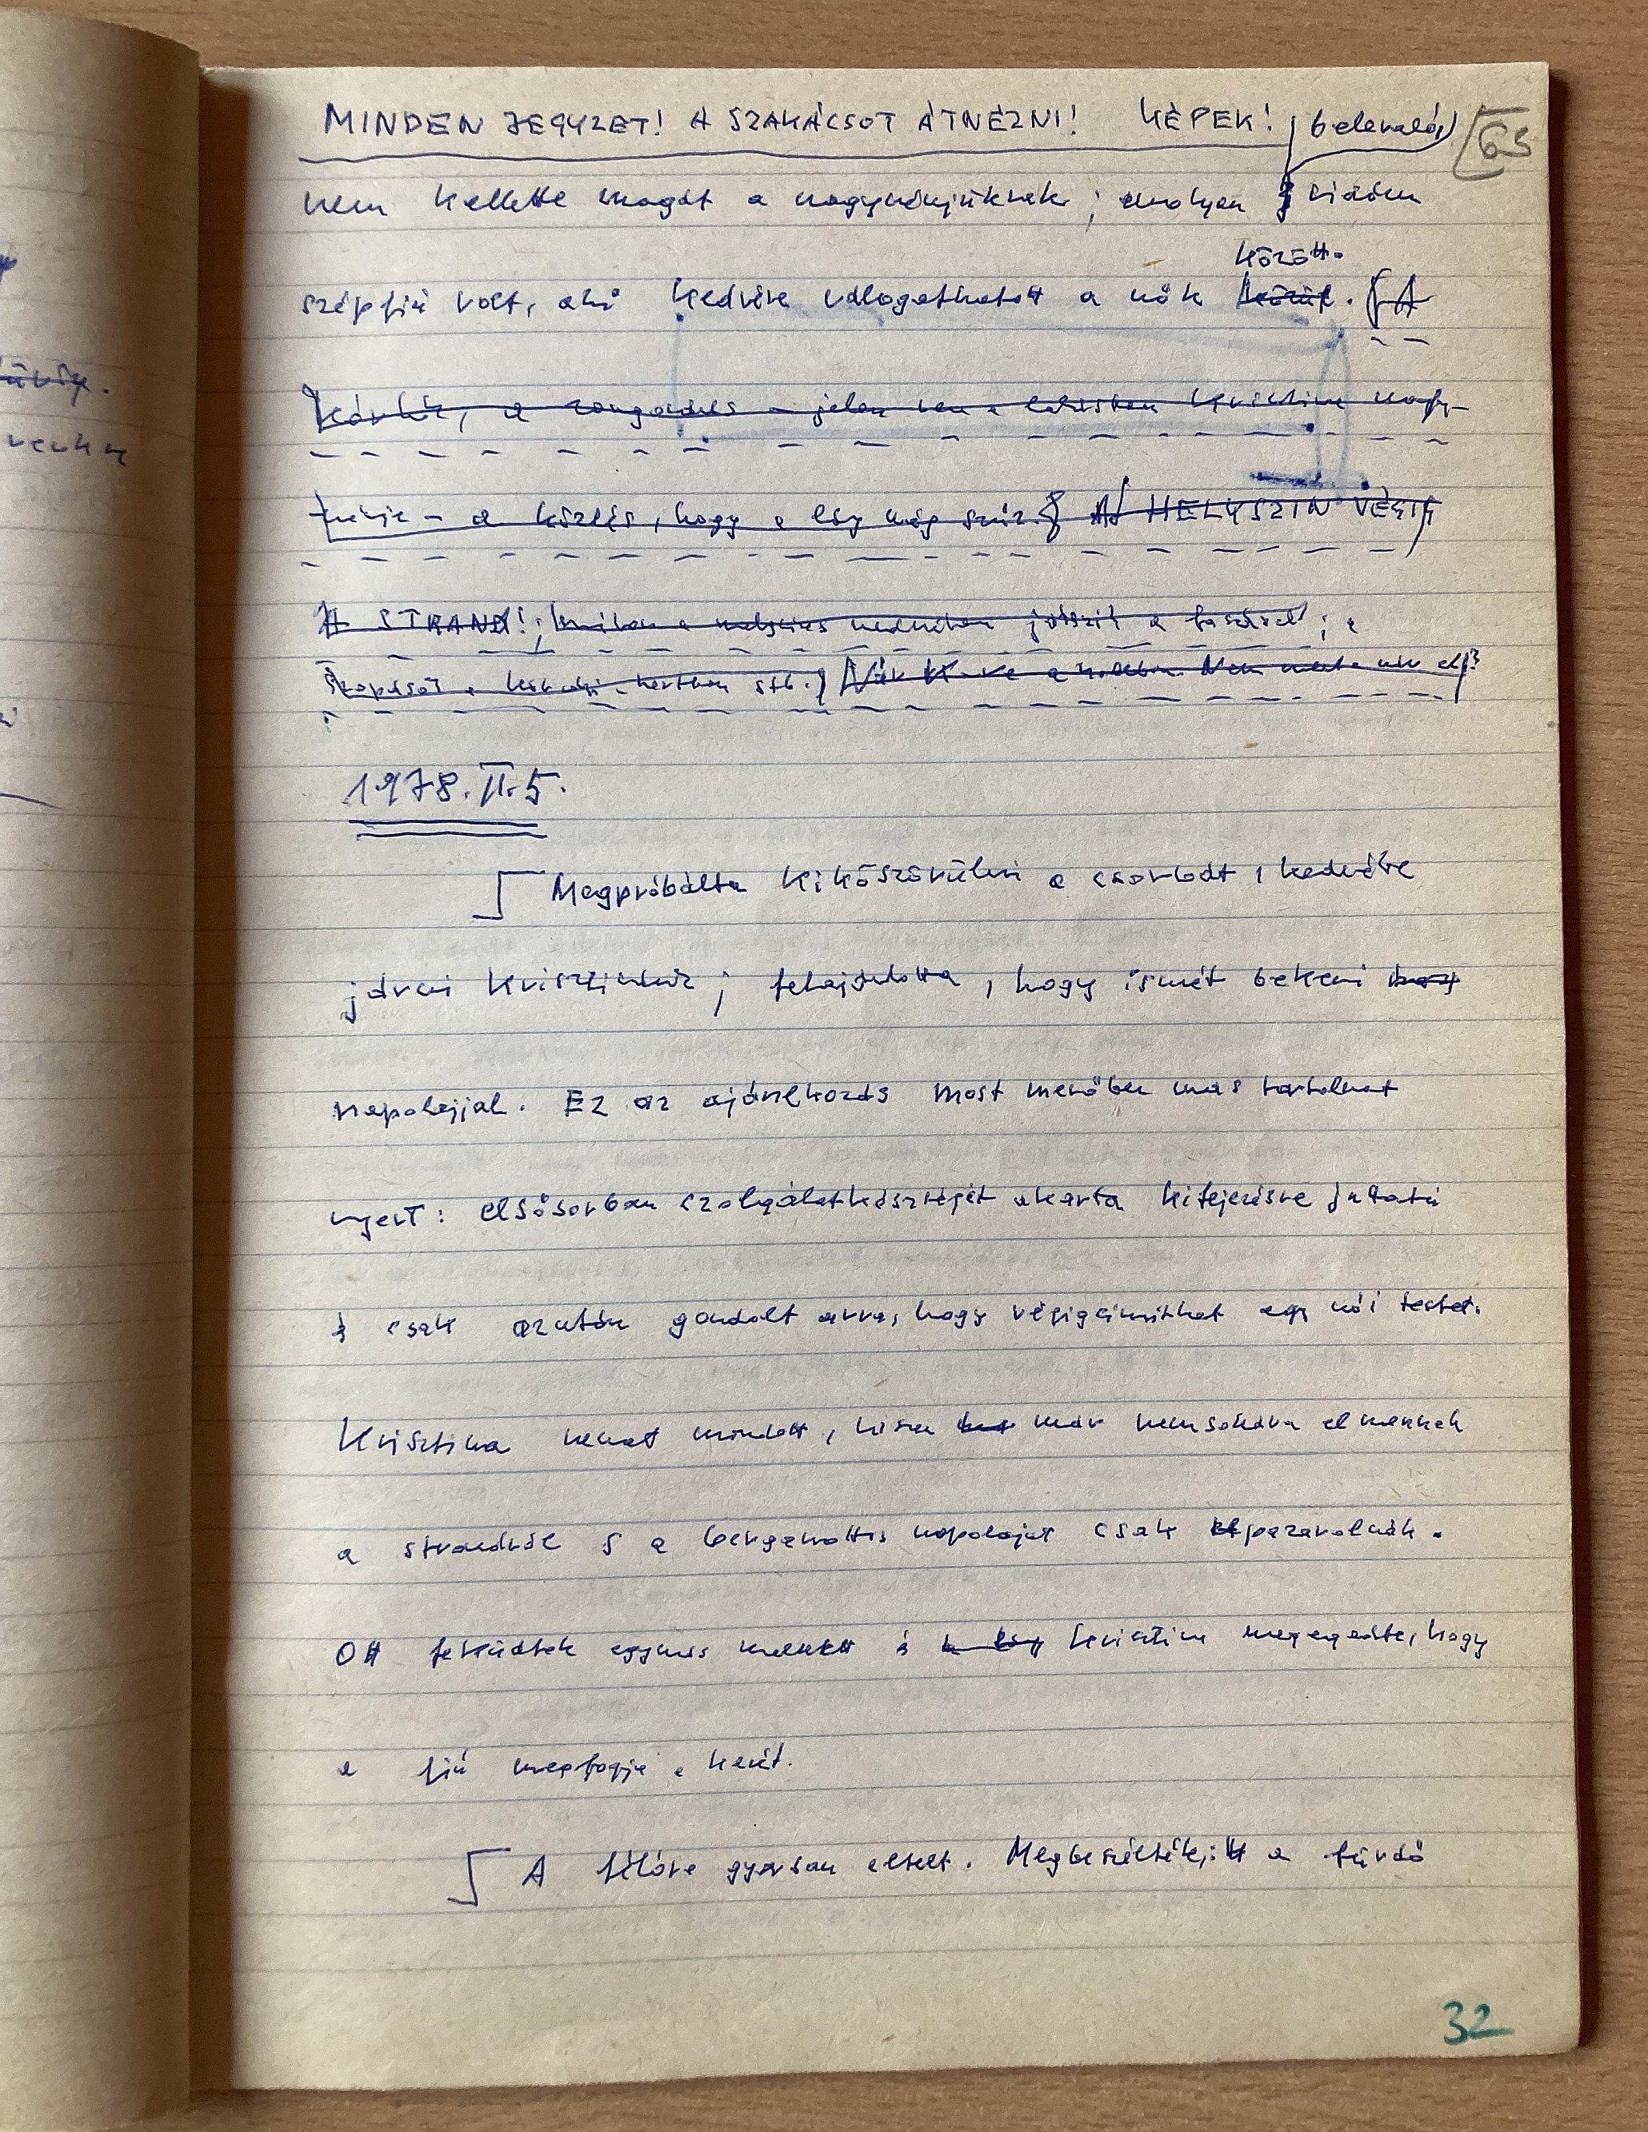 MINDEN JEGYZET! A SZAKÁCSOT ÁTNÉZNI! KÉPEK! belevaló 63
nem kellette magát a nagynénjüknek; amolyan vidám
között.
szépfiú volt, aki kedvére válogathatott a nők közül. A
a zongorázás - jelen van a Krisztina nagy-
nénje - a közlés, hogy a lány még szűz. A HELYSZIN VÉGIG
A STRAND!; medencében játszik a ; a
stb. Nem
1978. II. 5.
Megpróbálta kiköszörülni a csorbát, kedvére
járni Krisztinának; felajánlotta, hogy ismét bekeni
napolajjal. Ez az ajánlkozás most merőben más tartalmat
nyert: elsősorban szolgálatkészségét akarta kifejezésre juttatni
s csak azután gondolt arra, hogy végigsimíthat egy női testet.
Krisztina nemet mondott, hisz már nemsokára elmennek
a strandról s a bergamottis napolajat csak elpazarolnák.
Ott feküdtek egymás mellett s Krisztina megengedte, hogy
a fiú megfogja a kezét.
A félóra gyorsan eltelt. Megbeszélték, itt a fürdő
32